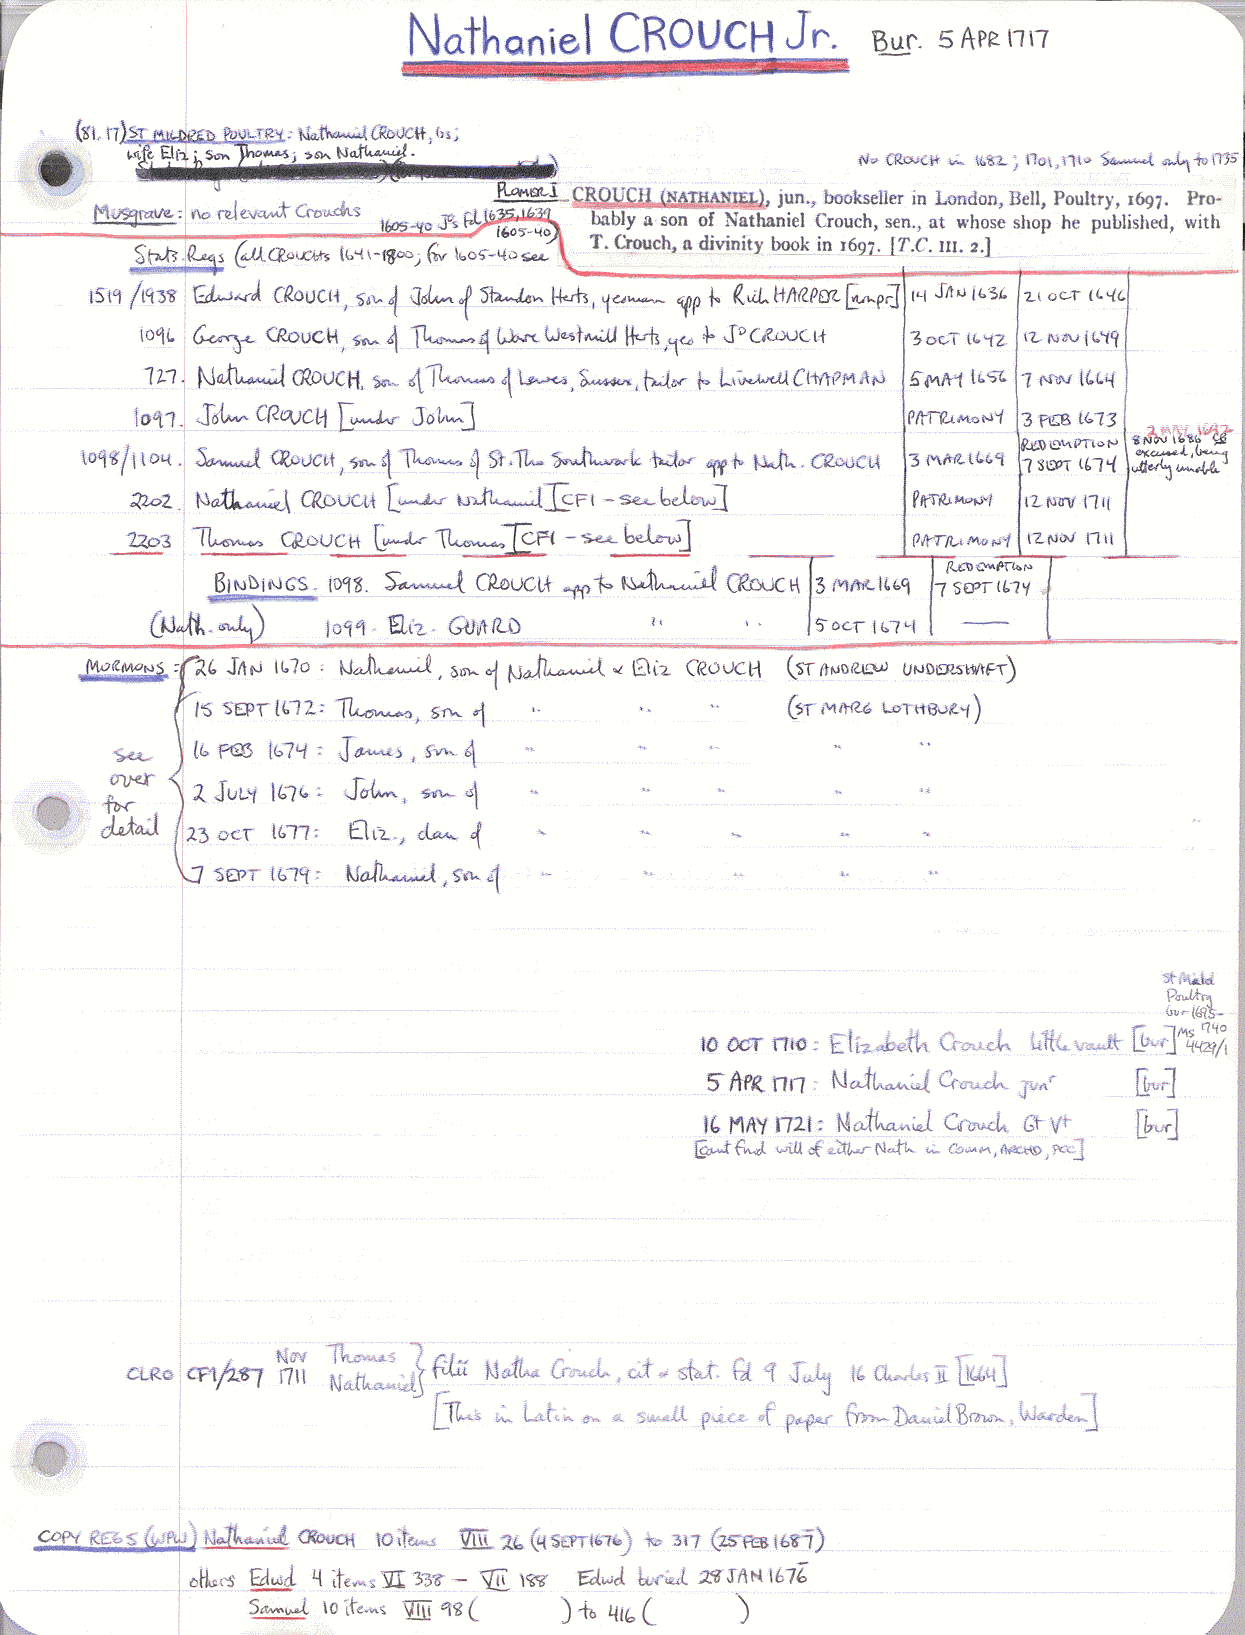 Nathaniel CROUCH Jr. Bur. 5 APR 1717
(81.17) ST MILDRED POULTRY: Nathaniel CROUCH, bs;
wife Eliz; son Thomas; son Nathaniel.
No CROUCH in 1682; 1701, 1710 Samuel only to 1735
Musgrave: no relevant Crouchs
PLOMER I
CROUCH (NATHANIEL), jun., bookseller in London, Bell, Poultry, 1697. Pro-
bably a son of Nathaniel Crouch, sen., at whose shop he published, with
T. Crouch, a divinity book in 1697. [T.C. III. 2.]
1605-40 Jo's fd 1635, 1639
1605-40)
Stats Regs (all CROUCHs 1641-1800; for 1605-40 see
1519/1938 Edward CROUCH, son of John of Standon Herts, yeoman app to Rich HARPER [nonpr] 14 JAN 1636 21 OCT 1646
1096 George CROUCH, son of Thomas of Ware Westmill Herts, yeo to Jo CROUCH 3 OCT 1642 12 NOV 1649
727. Nathaniel CROUCH, son of Thomas of Lewes, Sussex, tailor to Livewell CHAPMAN 5 MAY 1656 7 NOV 1664
1097. John CROUCH [under John] PATRIMONY 3 FEB 1673
1098/1104. Samuel CROUCH, son of Thomas of St. Tho Southwark tailor app to Nath. CROUCH 3 MAR 1669 REDEMPTION 7 SEPT 1674
2 MAY 1692
8 NOV 1686
excused, being
utterly unable
2202. Nathaniel CROUCH [under Nathaniel] [CF1 - see below] PATRIMONY 12 NOV 1711
2203 Thomas CROUCH [under Thomas] [CF1 - see below] PATRIMONY 12 NOV 1711
BINDINGS. 1098. Samuel CROUCH app to Nathaniel CROUCH 3 MAR 1669 REDEMPTION 7 SEPT 1674
(Nath. only) 1099. Eliz. GUARD " " 5 OCT 1674 —
MORMONS: 26 JAN 1670: Nathaniel, son of Nathaniel & Eliz CROUCH (ST ANDREW UNDERSHAFT)
15 SEPT 1672: Thomas, son of " " " (ST MARG LOTHBURY)
16 FEB 1674: James, son of " " " " "
2 JULY 1676: John, son of " " " " "
23 OCT 1677: Eliz., dau of " " " " "
7 SEPT 1679: Nathaniel, son of " " " " "
see
over
for
detail
St Mild
Poultry
bur 1695-
1740
Ms 4429/1
10 OCT 1710: Elizabeth Crouch little vault [bur]
5 APR 1717: Nathaniel Crouch junr [bur]
16 MAY 1721: Nathaniel Crouch Gt Vt [bur]
[cant find will of either Nath in Comm, ARCHD, PCC]
CLRO CF1/287 Nov 1711 Thomas
Nathaniel } filii Natha Crouch, cit & stat. fd 9 July 16 Charles II [1664]
[This in Latin on a small piece of paper from Daniel Brown, Warden]
COPY REGS (WPW) Nathaniel CROUCH 10 items VIII 26 (4 SEPT 1676) to 317 (25 FEB 1687)
others Edwd 4 items VI 338 - VII 188 Edwd buried 28 JAN 1676
Samuel 10 items VIII 98 ( ) to 416 ( )